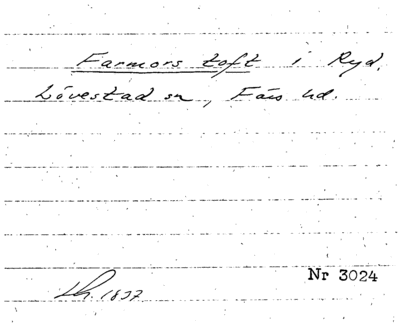 Farmors toft i Ryd.
Lövestad sn, Färs hd.
Nr 3024
Lh. 1837